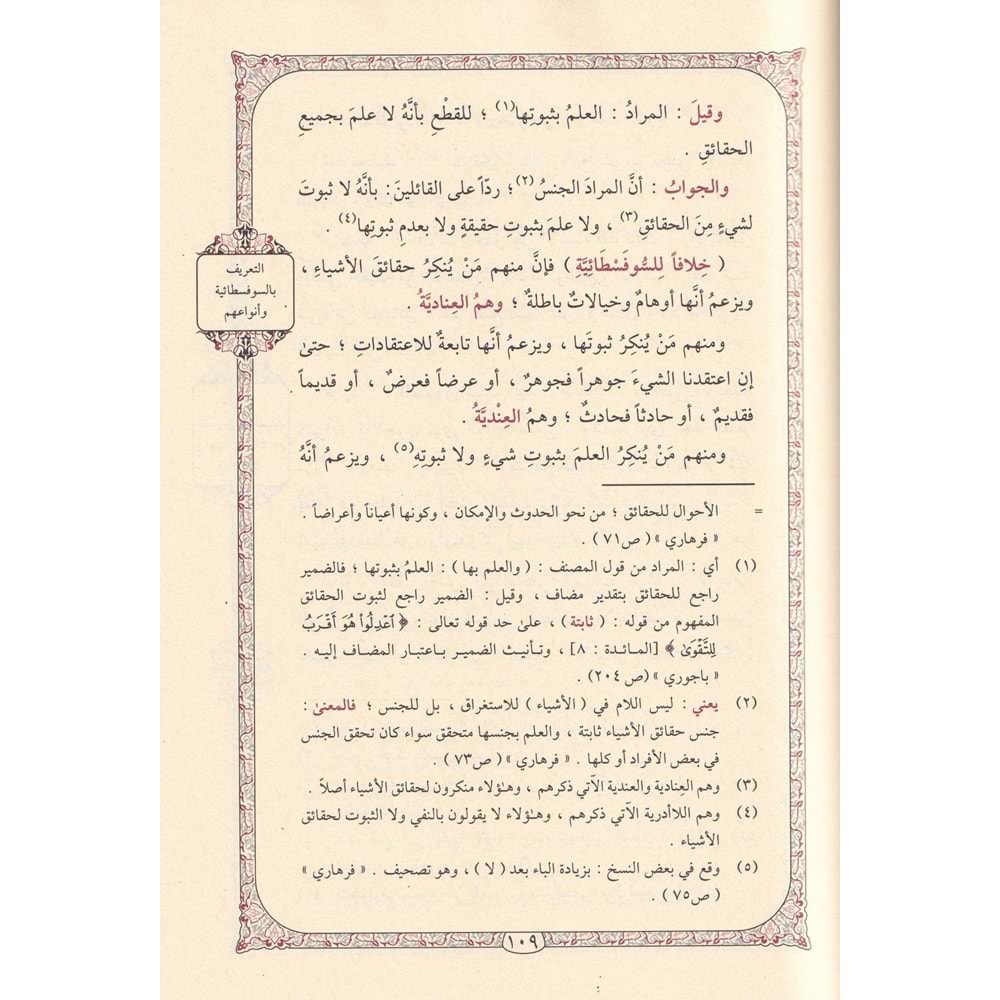 وقيلَ : المرادُ : العلمُ بثبوتِها(١) ؛ للقطْعِ بأنَّهُ لا علمَ بجميعِ
الحقائقِ .
والجوابُ : أنَّ المرادَ الجنسُ(٢)؛ ردّاً على القائلينَ: بأنَّهُ لا ثبوتَ
لشيءٍ مِنَ الحقائقِ(٣) ، ولا علمَ بثبوتِ حقيقةٍ ولا بعدمِ ثبوتِها(٤) .
( خِلافاً لِلسُّوفَسْطَائِيَّةِ ) فإنَّ منهم مَنْ يُنكِرُ حقائقَ الأشياءِ ،
ويزعمُ أنَّها أوهامٌ وخيالاتٌ باطلةٌ ؛ وهمُ العِناديَّةُ .
ومنهم مَنْ يُنكِرُ ثبوتَها ، ويزعمُ أنَّها تابعةٌ للاعتقاداتِ ؛ حتىٰ
إنِ اعتقدنا الشيءَ جوهراً فجوهرٌ ، أو عرضاً فعرضٌ ، أو قديماً
فقديمٌ ، أو حادثاً فحادثٌ ؛ وهمُ العِنْديَّةُ .
ومنهم مَنْ يُنكِرُ العلمَ بثبوتِ شيءٍ ولا ثبوتِهِ(٥) ، ويزعمُ أنَّهُ
التعريف
بالسوفسطائية
وأنواعهم
= الأحوال للحقائق ؛ من نحو الحدوث والإمكان ، وكونها أعياناً وأعراضاً .
« فرهاري » ( ص٧١ ) .
(١) أي : المراد من قول المصنف : ( والعلم بها ) : العلمُ بثبوتها ؛ فالضمير
راجع للحقائق بتقدير مضاف ، وقيل : الضمير راجع لثبوت الحقائق
المفهوم من قوله : ( ثابتة ) ، علىٰ حد قوله تعالى : ﴿ ٱعۡدِلُواْ هُوَ أَقۡرَبُ
لِلتَّقۡوَىٰ ﴾ [المـائـدة : ٨] ، وتـأنيـث الضميـر بـاعتبـار المضـاف إليـه .
« باجوري » (ص ٢٠٤) .
(٢) يعني : ليس اللام في ( الأشياء ) للاستغراق ، بل للجنس ؛ فالمعنىٰ :
جنس حقائق الأشياء ثابتة ، والعلم بجنسها متحقق سواء كان تحقق الجنس
في بعض الأفراد أو كلها . « فرهاري » ( ص٧٣ ) .
(٣) وهم العِنادية والعندية الآتي ذكرهم ، وهـٰؤلاء منكرون لحقائق الأشياء أصلاً .
(٤) وهم اللاأدرية الآتي ذكرهم ، وهـٰؤلاء لا يقولون بالنفي ولا الثبوت لحقائق
الأشياء .
(٥) وقع في بعض النسخ : بزيادة الباء بعد ( لا ) ، وهو تصحيف . « فرهاري »
( ص٧٥ ) .
١٠٩